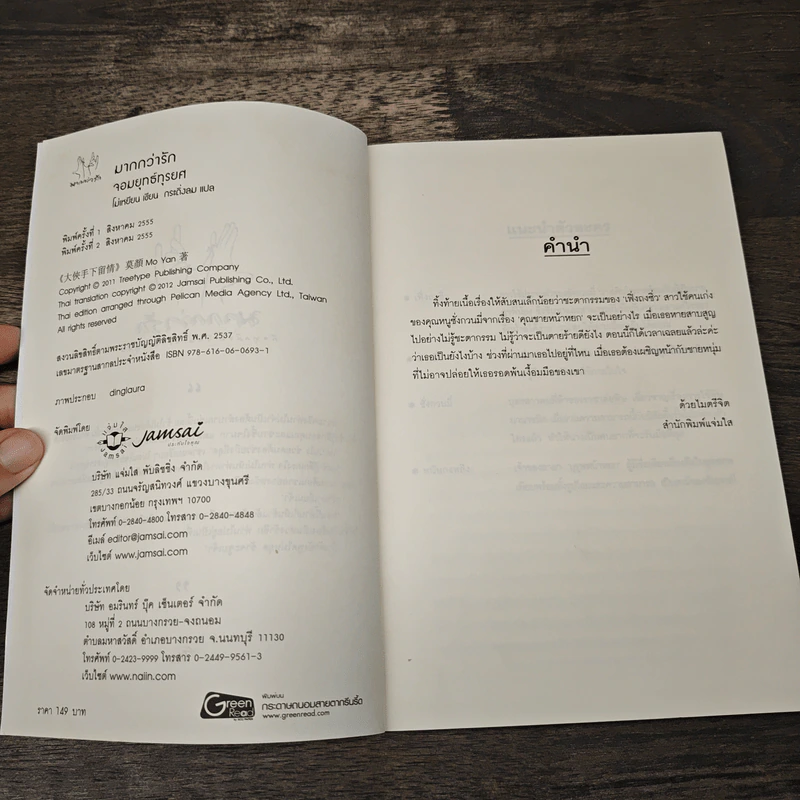 มากกว่ารัก
มากกว่ารัก
จอมยุทธ์ทุรยศ
โม่เหยียน เขียน กระดิ่งลม แปล
พิมพ์ครั้งที่ 1 สิงหาคม 2555
พิมพ์ครั้งที่ 2 สิงหาคม 2555
《大俠手下留情》 莫顏 Mo Yan 著
Copyright © 2011 Treetype Publishing Company
Thai translation copyright © 2012 Jamsai Publishing Co., Ltd.
Thai edition arranged through Pelican Media Agency Ltd., Taiwan
All rights reserved
สงวนลิขสิทธิ์ตามพระราชบัญญัติลิขสิทธิ์ พ.ศ. 2537
เลขมาตรฐานสากลประจำหนังสือ ISBN 978-616-06-0693-1
ภาพประกอบ dinglaura
จัดพิมพ์โดย
แจ่มใส
Jamsai
jamsai
บริษัท แจ่มใส พับลิชชิ่ง จำกัด
285/33 ถนนจรัญสนิทวงศ์ แขวงบางขุนศรี
เขตบางกอกน้อย กรุงเทพฯ 10700
โทรศัพท์ 0-2840-4800 โทรสาร 0-2840-4848
อีเมล์ editor@jamsai.com
เว็บไซต์ www.jamsai.com
จัดจำหน่ายทั่วประเทศโดย
บริษัท อมรินทร์ บุ๊ค เซ็นเตอร์ จำกัด
108 หมู่ที่ 2 ถนนบางกรวย-จงถนอม
ตำบลมหาสวัสดิ์ อำเภอบางกรวย จ.นนทบุรี 11130
โทรศัพท์ 0-2423-9999 โทรสาร 0-2449-9561-3
เว็บไซต์ www.naiin.com
ราคา 149 บาท
Green Read
พิมพ์บน
กระดาษถนอมสายตากรีนรี้ด
www.greenread.com
คำนำ
ทิ้งท้ายเนื้อเรื่องให้สับสนเล็กน้อยว่าชะตากรรมของ 'เฟิ่งถงซิ่ว' สาวใช้คนเก่ง
ของคุณหนูชั่งกวนมี่จากเรื่อง 'คุณชายหน้าหยก' จะเป็นอย่างไร เมื่อเธอหายสาบสูญ
ไปอย่างไม่รู้ชะตากรรม ไม่รู้ว่าจะเป็นตายร้ายดียังไง ตอนนี้ก็ได้เวลาเฉลยแล้วล่ะค่ะ
ว่าเธอเป็นยังไงบ้าง ช่วงที่ผ่านมาเธอไปอยู่ที่ไหน เมื่อเธอต้องเผชิญหน้ากับชายหนุ่ม
ที่ไม่อาจปล่อยให้เธอรอดพ้นเงื้อมมือของเขา
ด้วยไมตรีจิต
สำนักพิมพ์แจ่มใส